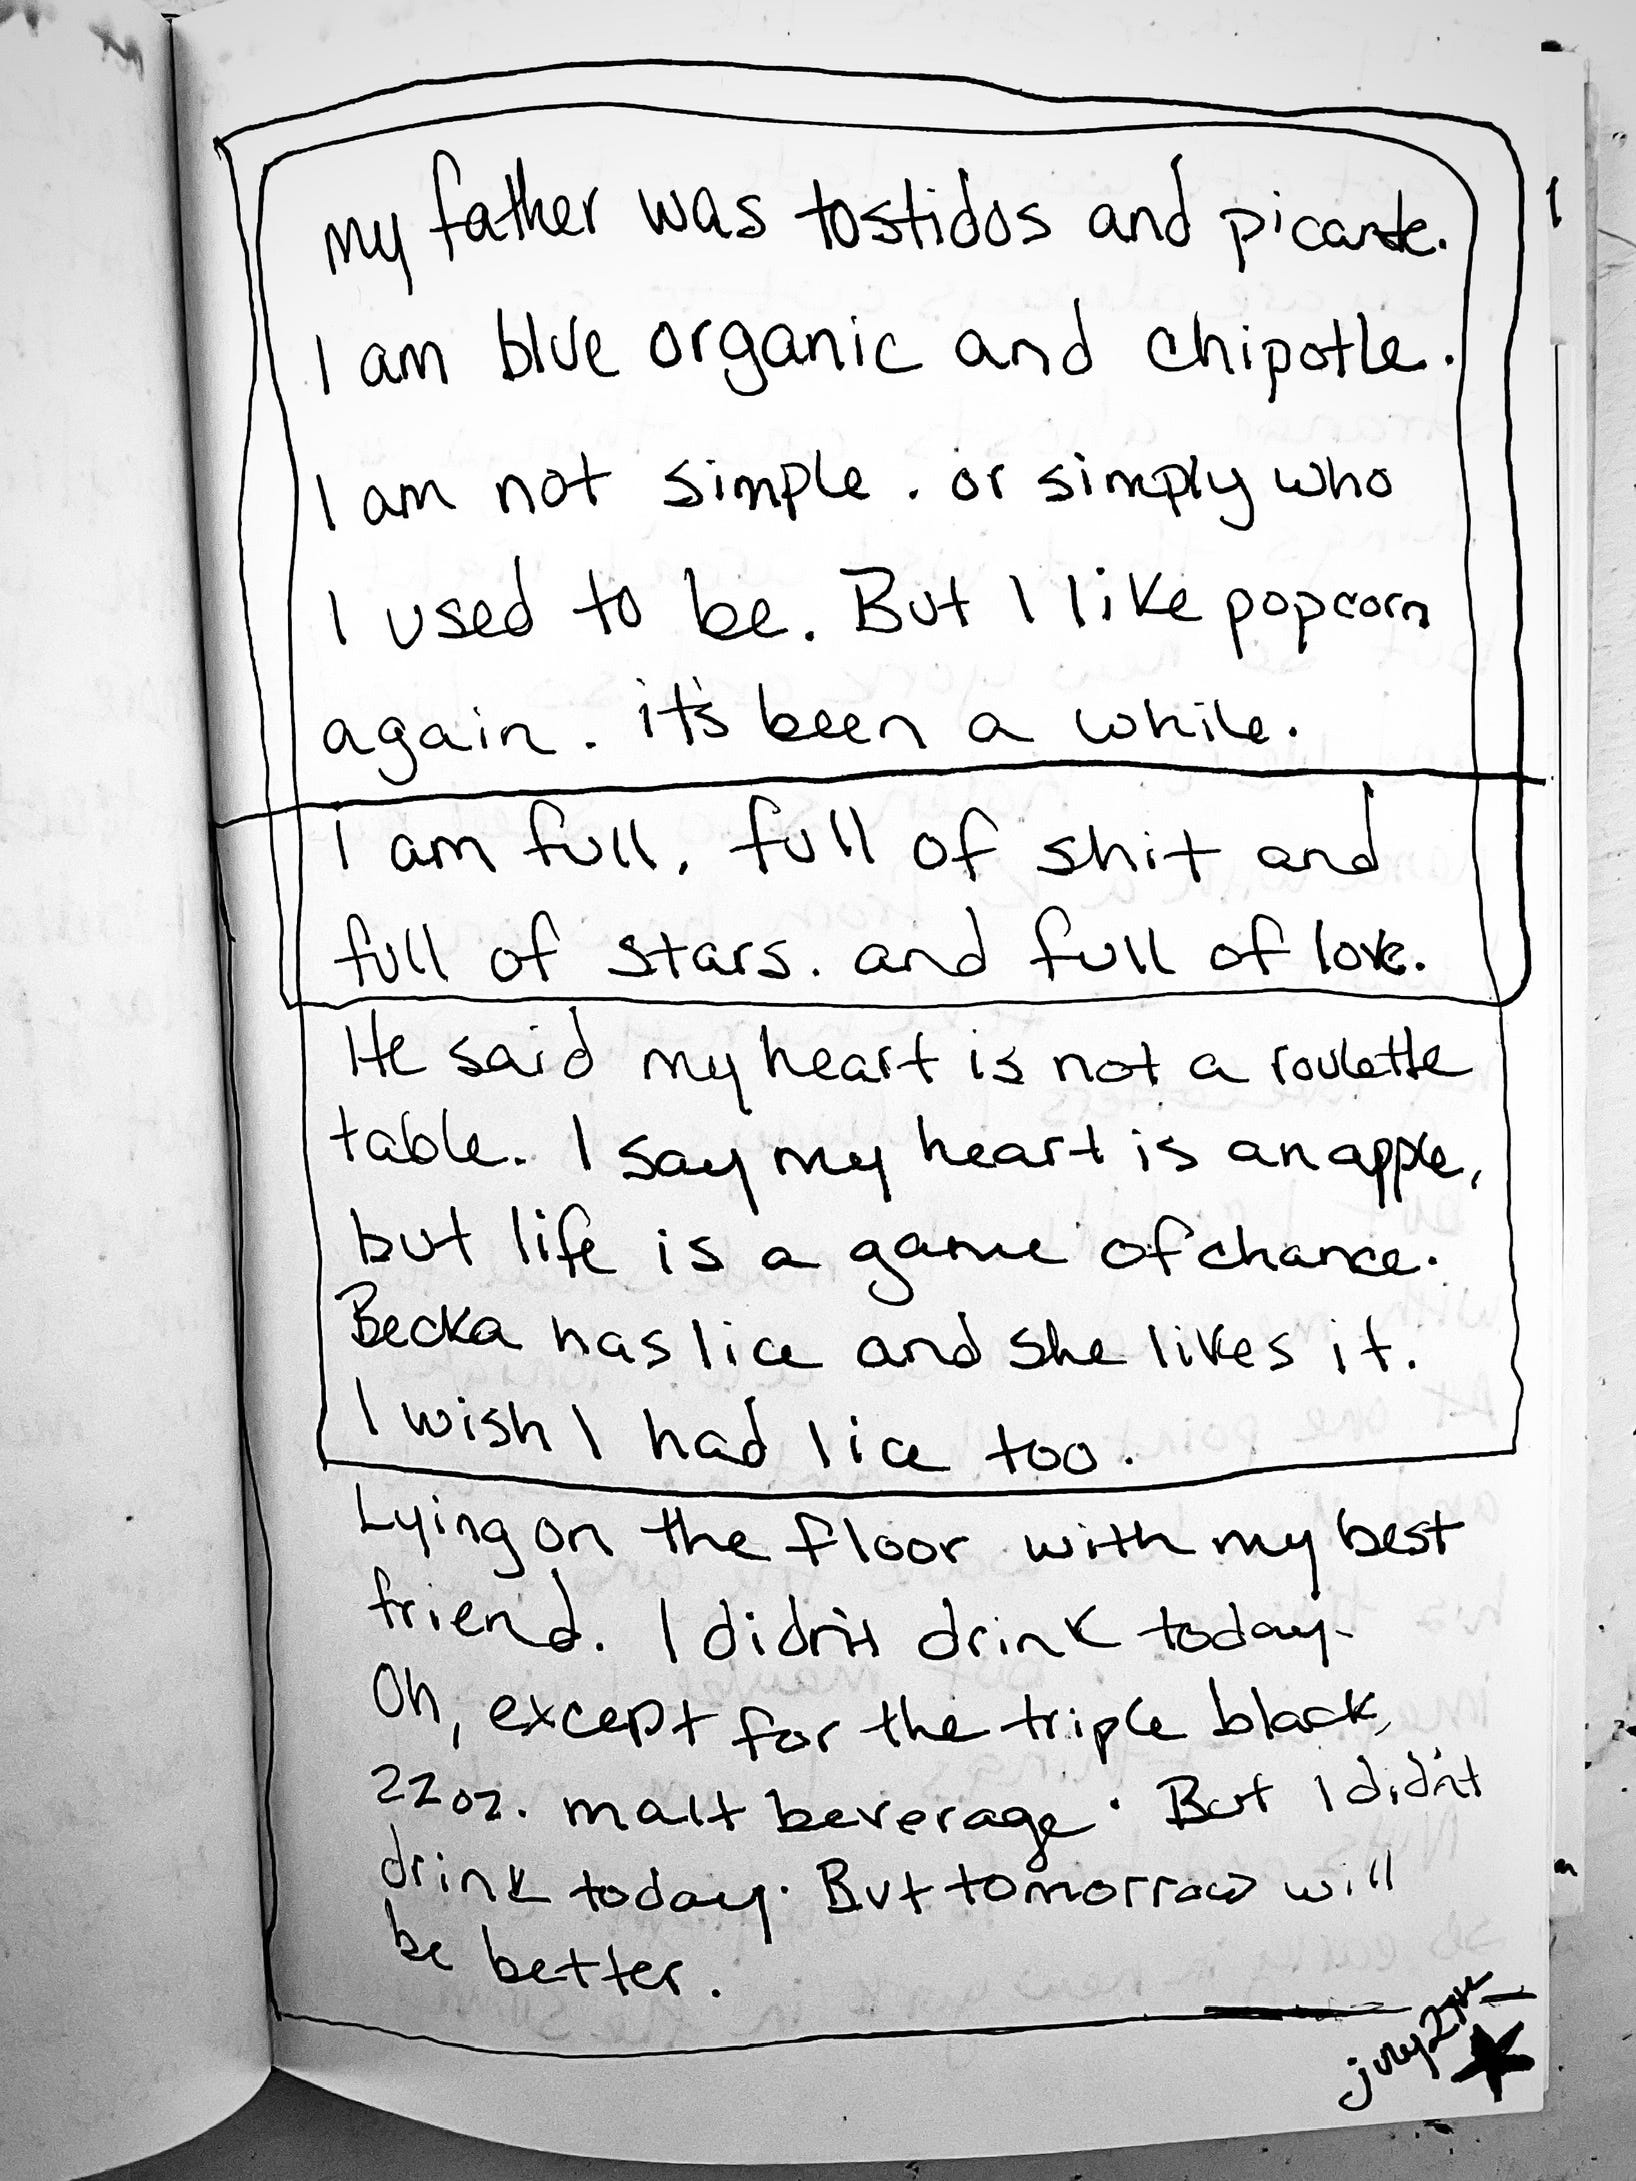 my father was tostidos and picante.
I am blue organic and chipotle.
I am not simple. or simply who
I used to be. But I like popcorn
again. it's been a while.
I am full, full of shit and
full of stars. and full of love.
He said my heart is not a roulette
table. I say my heart is an apple,
but life is a game of chance.
Becka has lice and she likes it.
I wish I had lice too.
Lying on the floor with my best
friend. I didn't drink today.
Oh, except for the triple black,
22oz. malt beverage. But I didn't
drink today. But tomorrow will
be better.
july 27th